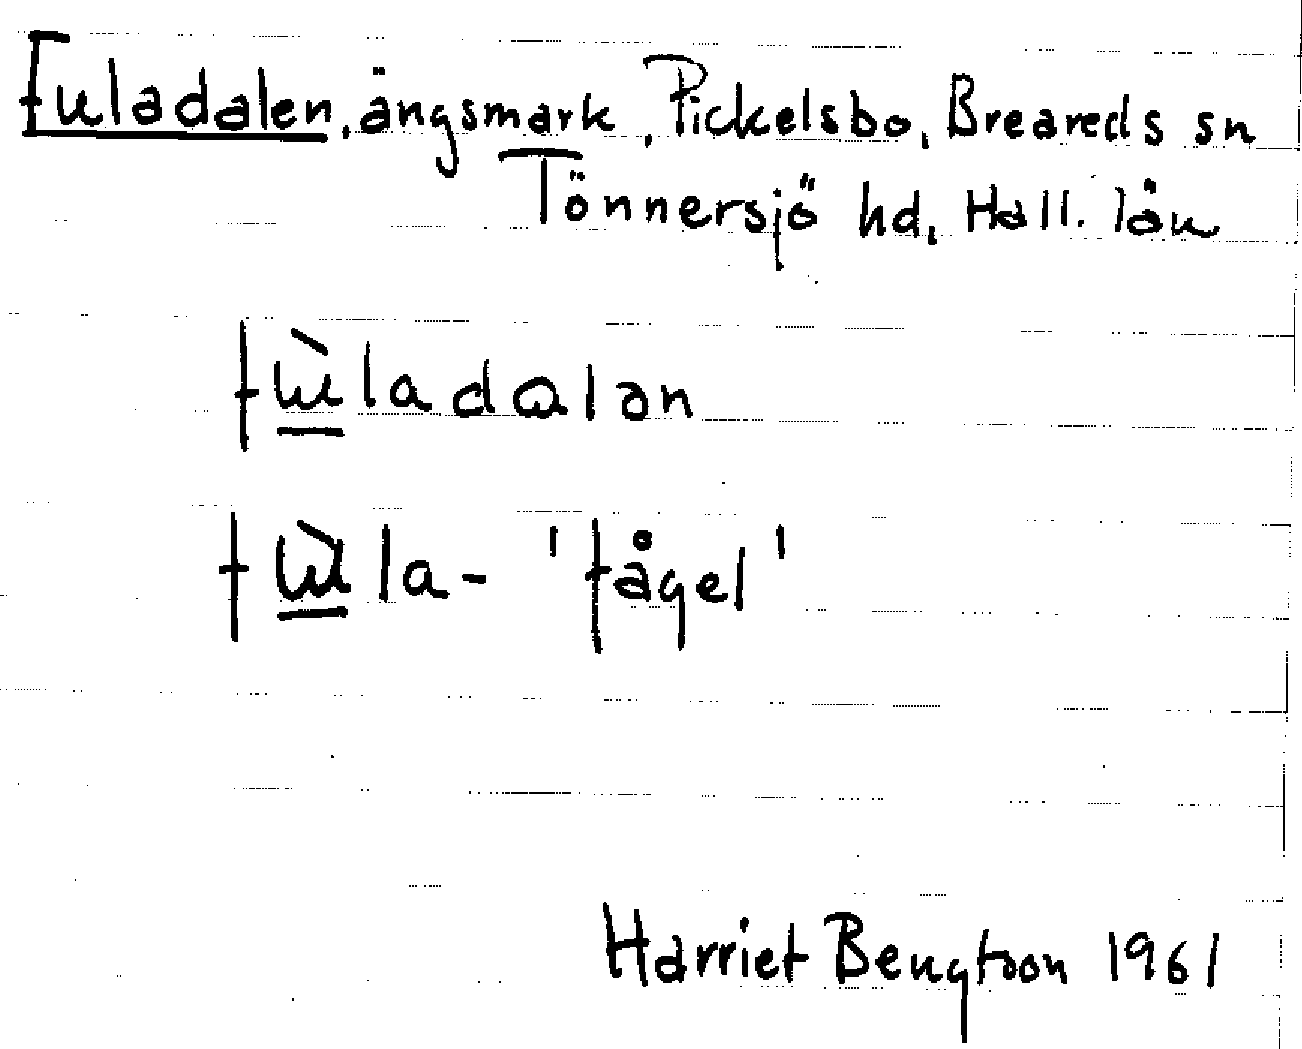 Fuladalen, ängsmark, Pickelsbo, Breareds sn
Tönnersjö hd, Hall. län
fɯ̀ladɑlən
fɯ̀la- 'fågel'
Harriet Bengtson 1961